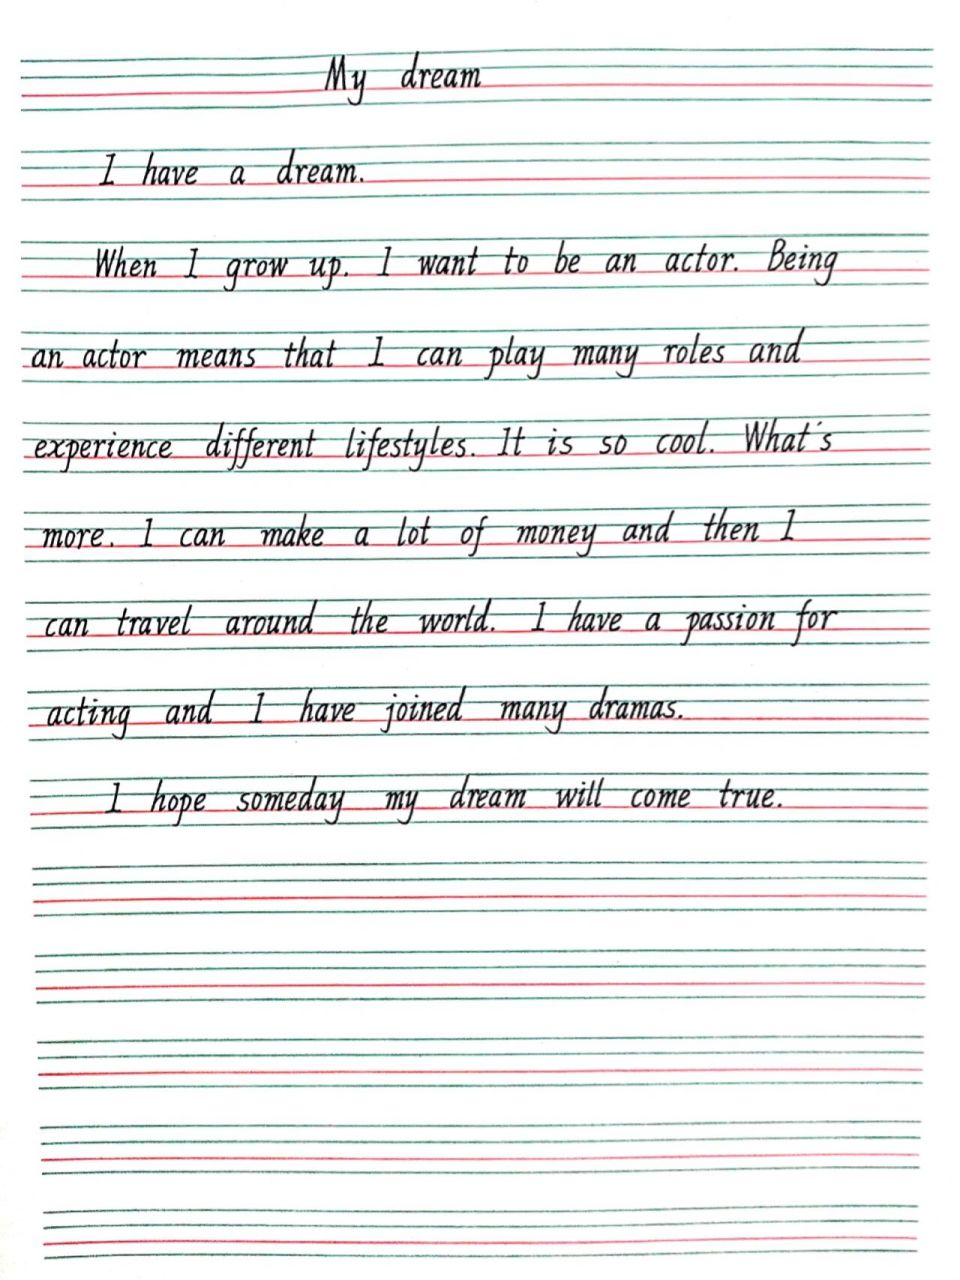 My dream
I have a dream.
When I grow up. I want to be an actor. Being
an actor means that I can play many roles and
experience different lifestyles. It is so cool. What's
more. I can make a lot of money and then I
can travel around the world. I have a passion for
acting and I have joined many dramas.
I hope someday my dream will come true.